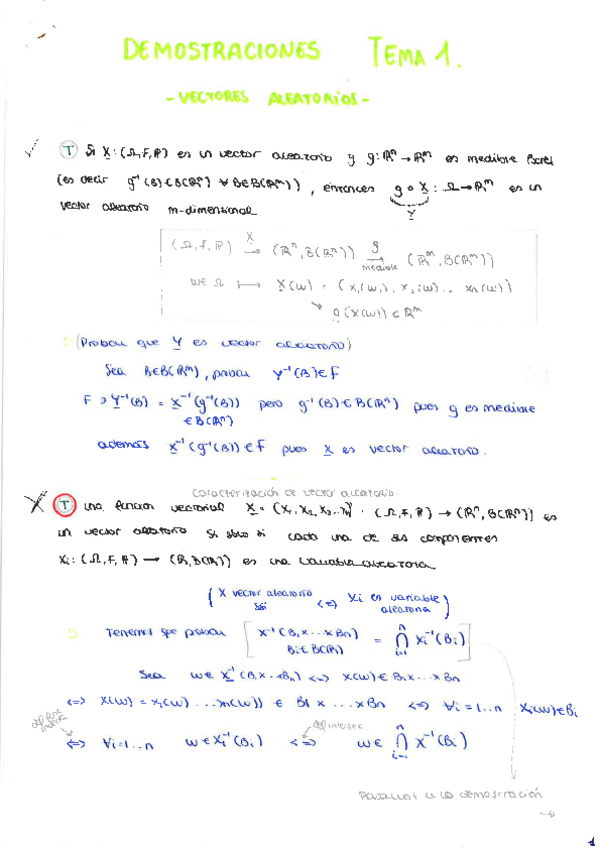 DEMOSTRACIONES TEMA 1.
- VECTORES ALEATORIOS -
T Si X: (Ω, F, P) es un vector aleatorio y g: ℝⁿ → ℝᵐ es medible Borel
(es decir g⁻¹(B) ∈ B(ℝⁿ) ∀ B ∈ B(ℝᵐ)), entonces g ∘ X : Ω → ℝᵐ es un
Y
vector aleatorio m-dimensional
(Ω, F, P) X → (ℝⁿ, B(ℝⁿ)) g → medible (ℝᵐ, B(ℝᵐ))
ω ∈ Ω ⟼ X(ω) = (x₁(ω), x₂(ω) ... xn(ω))
g(X(ω)) ∈ ℝᵐ
(Probar que Y es vector aleatorio)
Sea B ∈ B(ℝᵐ), probar Y⁻¹(B) ∈ F
F ∋ Y⁻¹(B) = X⁻¹(g⁻¹(B)) pero g⁻¹(B) ∈ B(ℝⁿ) pues g es medible
∈ B(ℝⁿ)
además X⁻¹(g⁻¹(B)) ∈ F pues X es vector aleatorio.
Caracterización de vector aleatorio
T Una función vectorial X = (X₁, X₂, X₃...Xn)ᵗ : (Ω, F, P) → (ℝⁿ, B(ℝⁿ)) es
un vector aleatorio si sólo si cada una de sus componentes
Xi: (Ω, F, P) → (ℝ, B(ℝ)) es una variable aleatoria
(X vector aleatorio <=> Xi es variable
aleatoria)
Tenemos que probar [X⁻¹(B₁ x ... x Bn) = ⋂ᵢ₌₁ⁿ Xi⁻¹(Bi)]
Bi ∈ B(ℝ)
Sea ω ∈ X⁻¹(B₁ x ... x Bn) <=> X(ω) ∈ B₁ x ... x Bn
<=> X(ω) = x₁(ω) ... xn(ω)) ∈ B1 x ... x Bn <=> ∀i = 1...n Xi(ω) ∈ Bi
def inversa
def intersec
<=> ∀i = 1...n ω ∈ Xi⁻¹(Bi) <=> ω ∈ ⋂ᵢ₌₁ⁿ X⁻¹(Bi)
Pasamos a la demostración